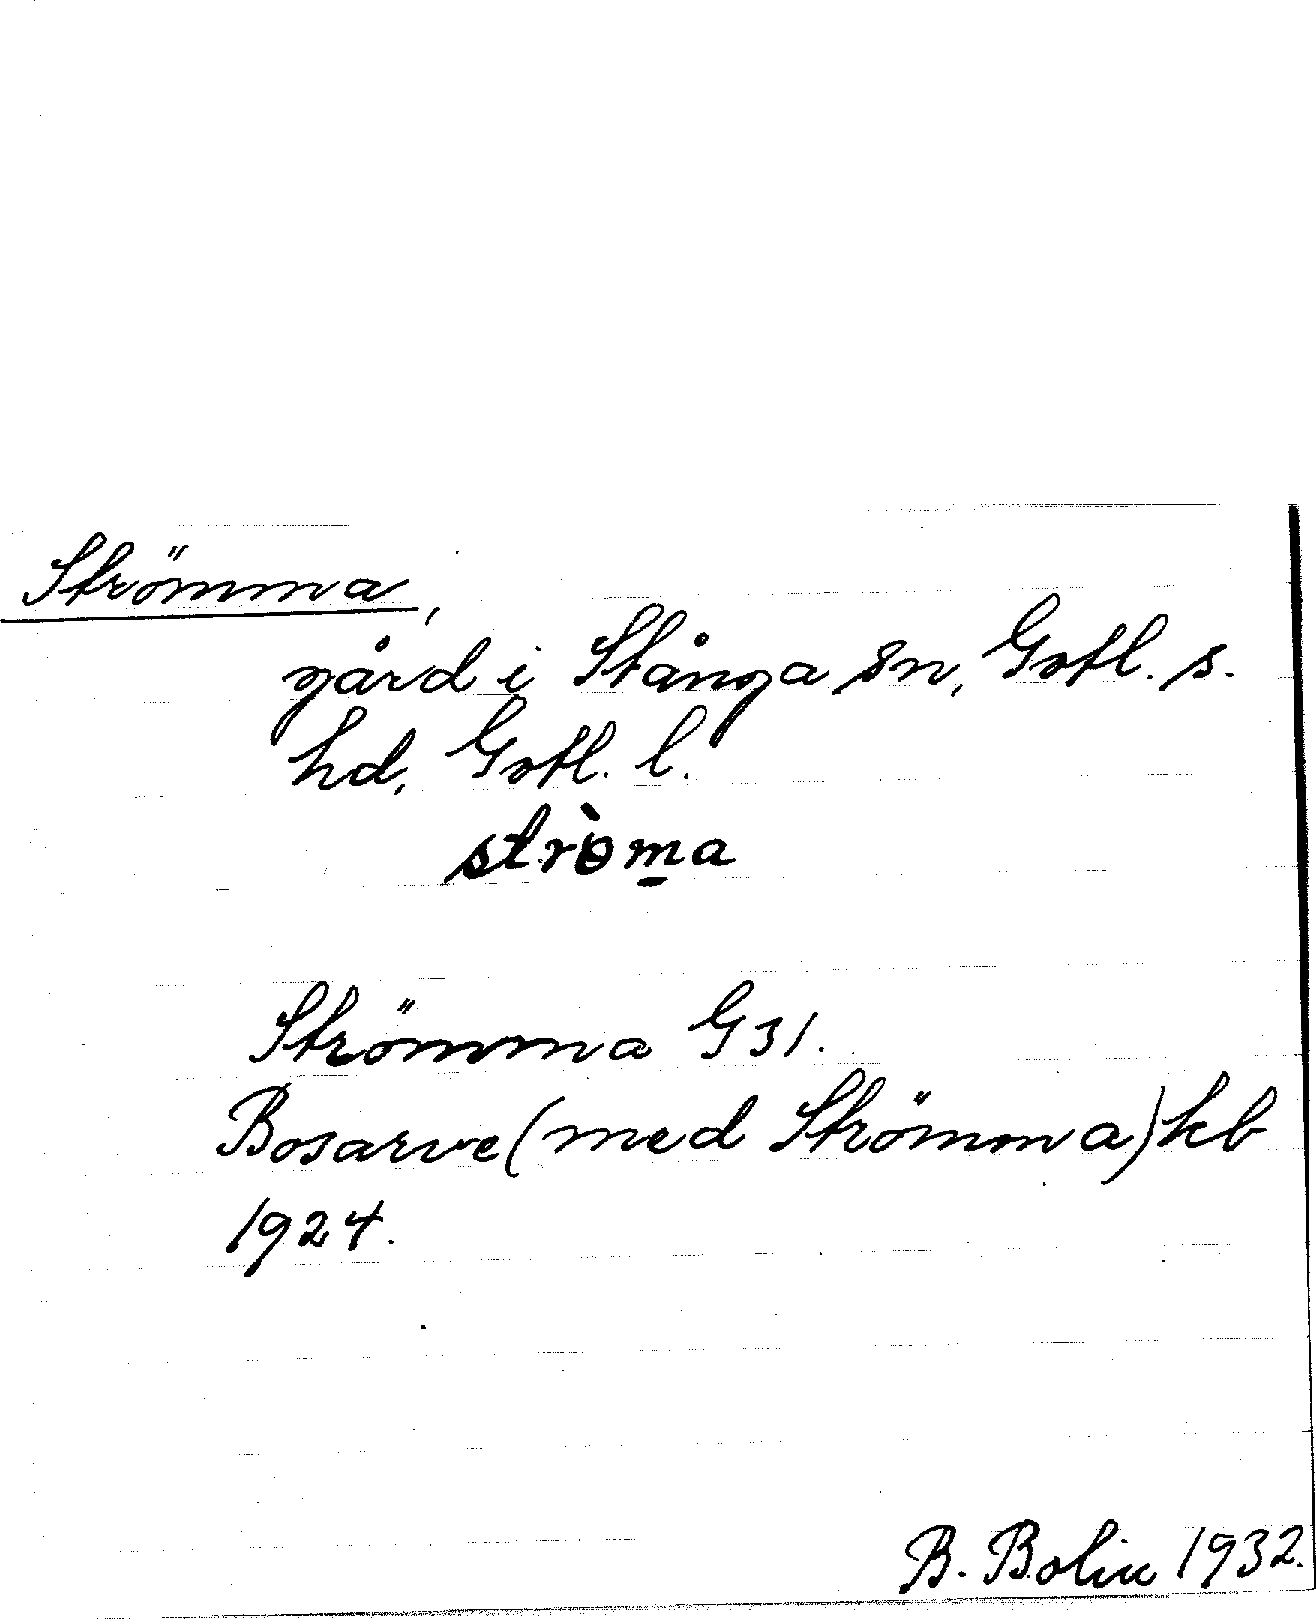 Strömma,
gård i Stånga sn, Gotl. s.
hd, Gotl. l.
strò̵m̱a
Strömma G31.
Bosarve (med Strömma) kb
1924.
B. Bolin 1932.